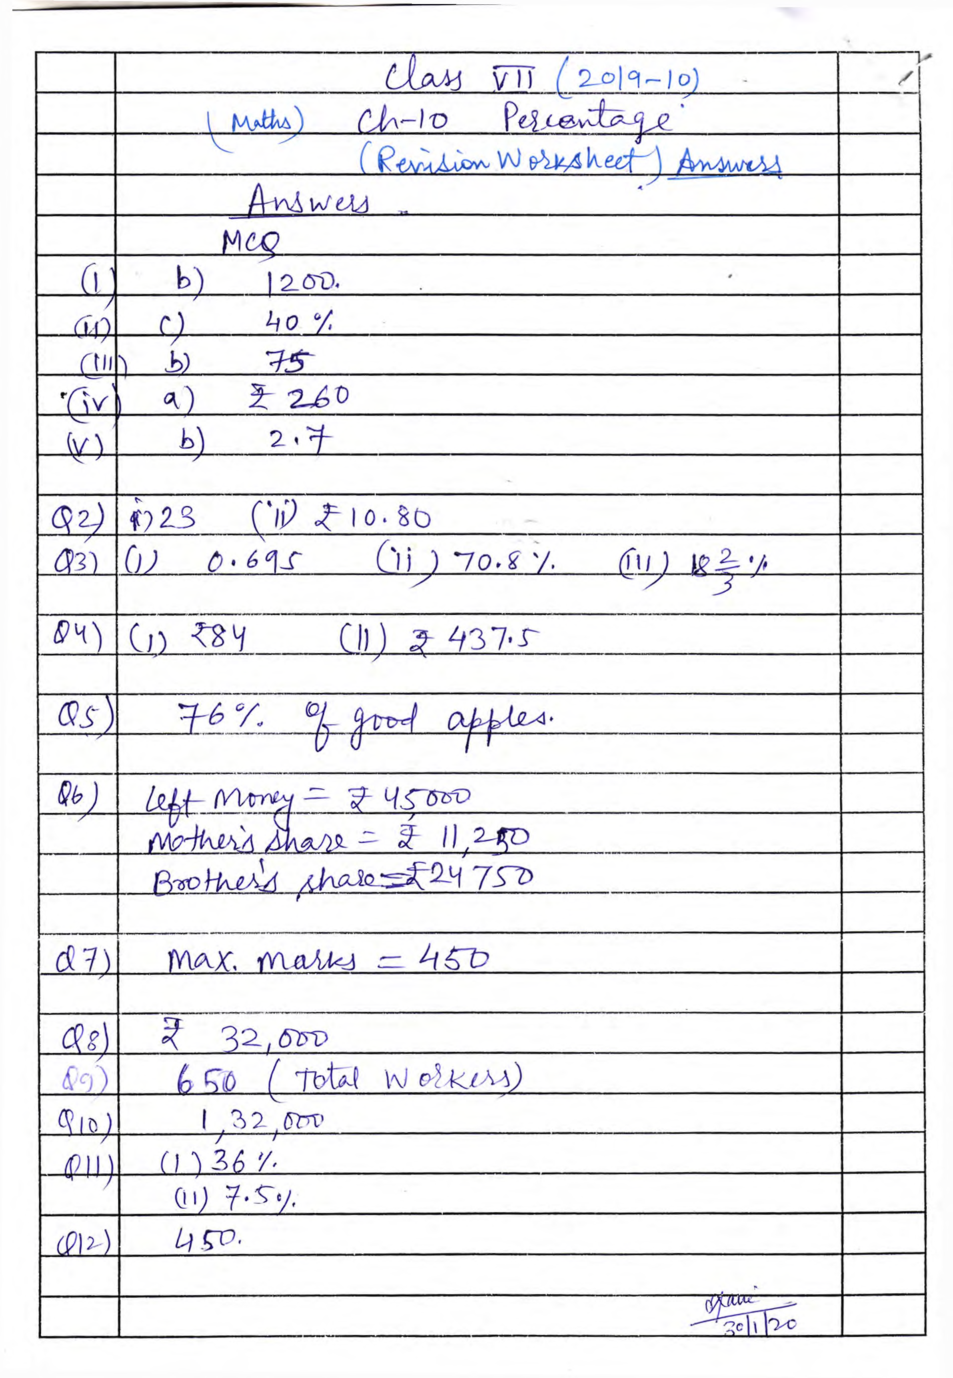 Class VII (2019-10)
(Maths) Ch-10 Percentage
(Revision Worksheet) Answers
Answers
MCQ
(i) b) 1200.
(ii) c) 40 %
(iii) b) 75
(iv) a) ₹ 260
(v) b) 2.7
Q2) i) 23 (ii) ₹ 10.80
Q3) (i) 0.695 (ii) 70.8 %. (iii) 18 2/3 %
Q4) (i) ₹84 (ii) ₹ 437.5
Q5) 76%. of good apples.
Q6) Left Money = ₹ 45000
Mother's share = ₹ 11,250
Brother's share = ₹24750
Q7) Max. marks = 450
Q8) ₹ 32,000
Q9) 650 (Total Workers)
Q10) 1,32,000
Q11) (i) 36 %.
(ii) 7.5%.
Q12) 450.
30/1/20